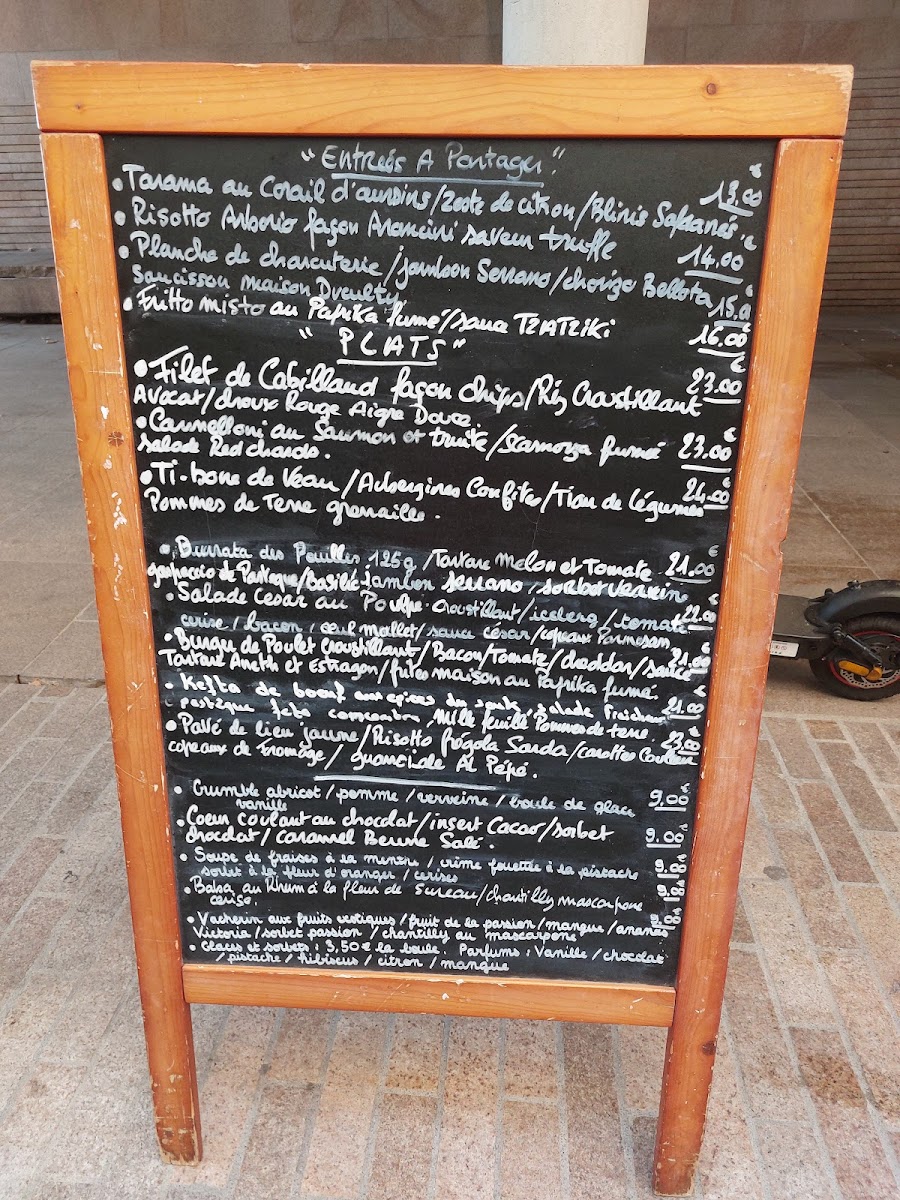 "Entrées A Partager"
• Tarama au Corail d'oursins / Zeste de citron / Blinis Safranés. 13,00 €
• Risotto Arborio façon Arancini saveur truffe 14,00 €
• Planche de charcuterie / jambon Serrano / chorizo Bellota
Saucisson maison 15,0 €
• Fritto misto au Paprika fumé / sauce TZATZIKI 16,00
"PLATS"
• Filet de Cabillaud façon chips / Riz Croustillant 23,00 €
Avocat / choux Rouge Aigre Douce.
• Cannelloni au Saumon et truite / Scamorza fumée 23,00 €
Salade Red chards.
• Ti-bone de Veau / Aubergines Confites / Tian de légumes 24,00 €
Pommes de Terre grenailles.
• Burrata des Pouilles 125g / Tartare Melon et Tomate 21,00 €
gaspacco de Pasteque / Basilic jambon serrano, sorbet verveine
• Salade Cesar au Poulpe croustillant / iceberg / tomate 22,00 €
cerise, bacon, œuf mollet / sauce césar / copeaux Parmesan
• Burger de Poulet Croustillant / Bacon / Tomate / cheddar / sauce 21,00 €
Tartare Aneth et Estragon / frites maison au Paprika fumé.
• Kefta de boeuf aux epices du souk, salade fraicheur 21,00 €
(pastèque feta concombre, Mille feuille Pommes de terre.
• Pavé de lieu jaune / Risotto frégola Sarda / carottes Couleur 23,00 €
copeaux de fromage / guanciale Al Pépé.
• Crumble abricot / pomme / verveine / boule de glace 9,00 €
vanille
• Coeur coulant au chocolat / insert Cacao / sorbet
chocolat / Caramel Beurre Salé. 9,00 €
• Soupe de fraises à la menthe / crème fouettée à la pistache
sorbet à la fleur d'oranger / cerises
• Baba au Rhum à la fleur de Sureau / chantilly mascarpone
cerise.
• Vacherin aux fruits exotiques / fruit de la passion / mangue / ananas
Victoria / sorbet passion / chantilly au mascarpone
• Glaces et sorbets : 3,50€ la boule. Parfums : Vanille / chocolat
/ pistache / hibiscus / citron / mangue